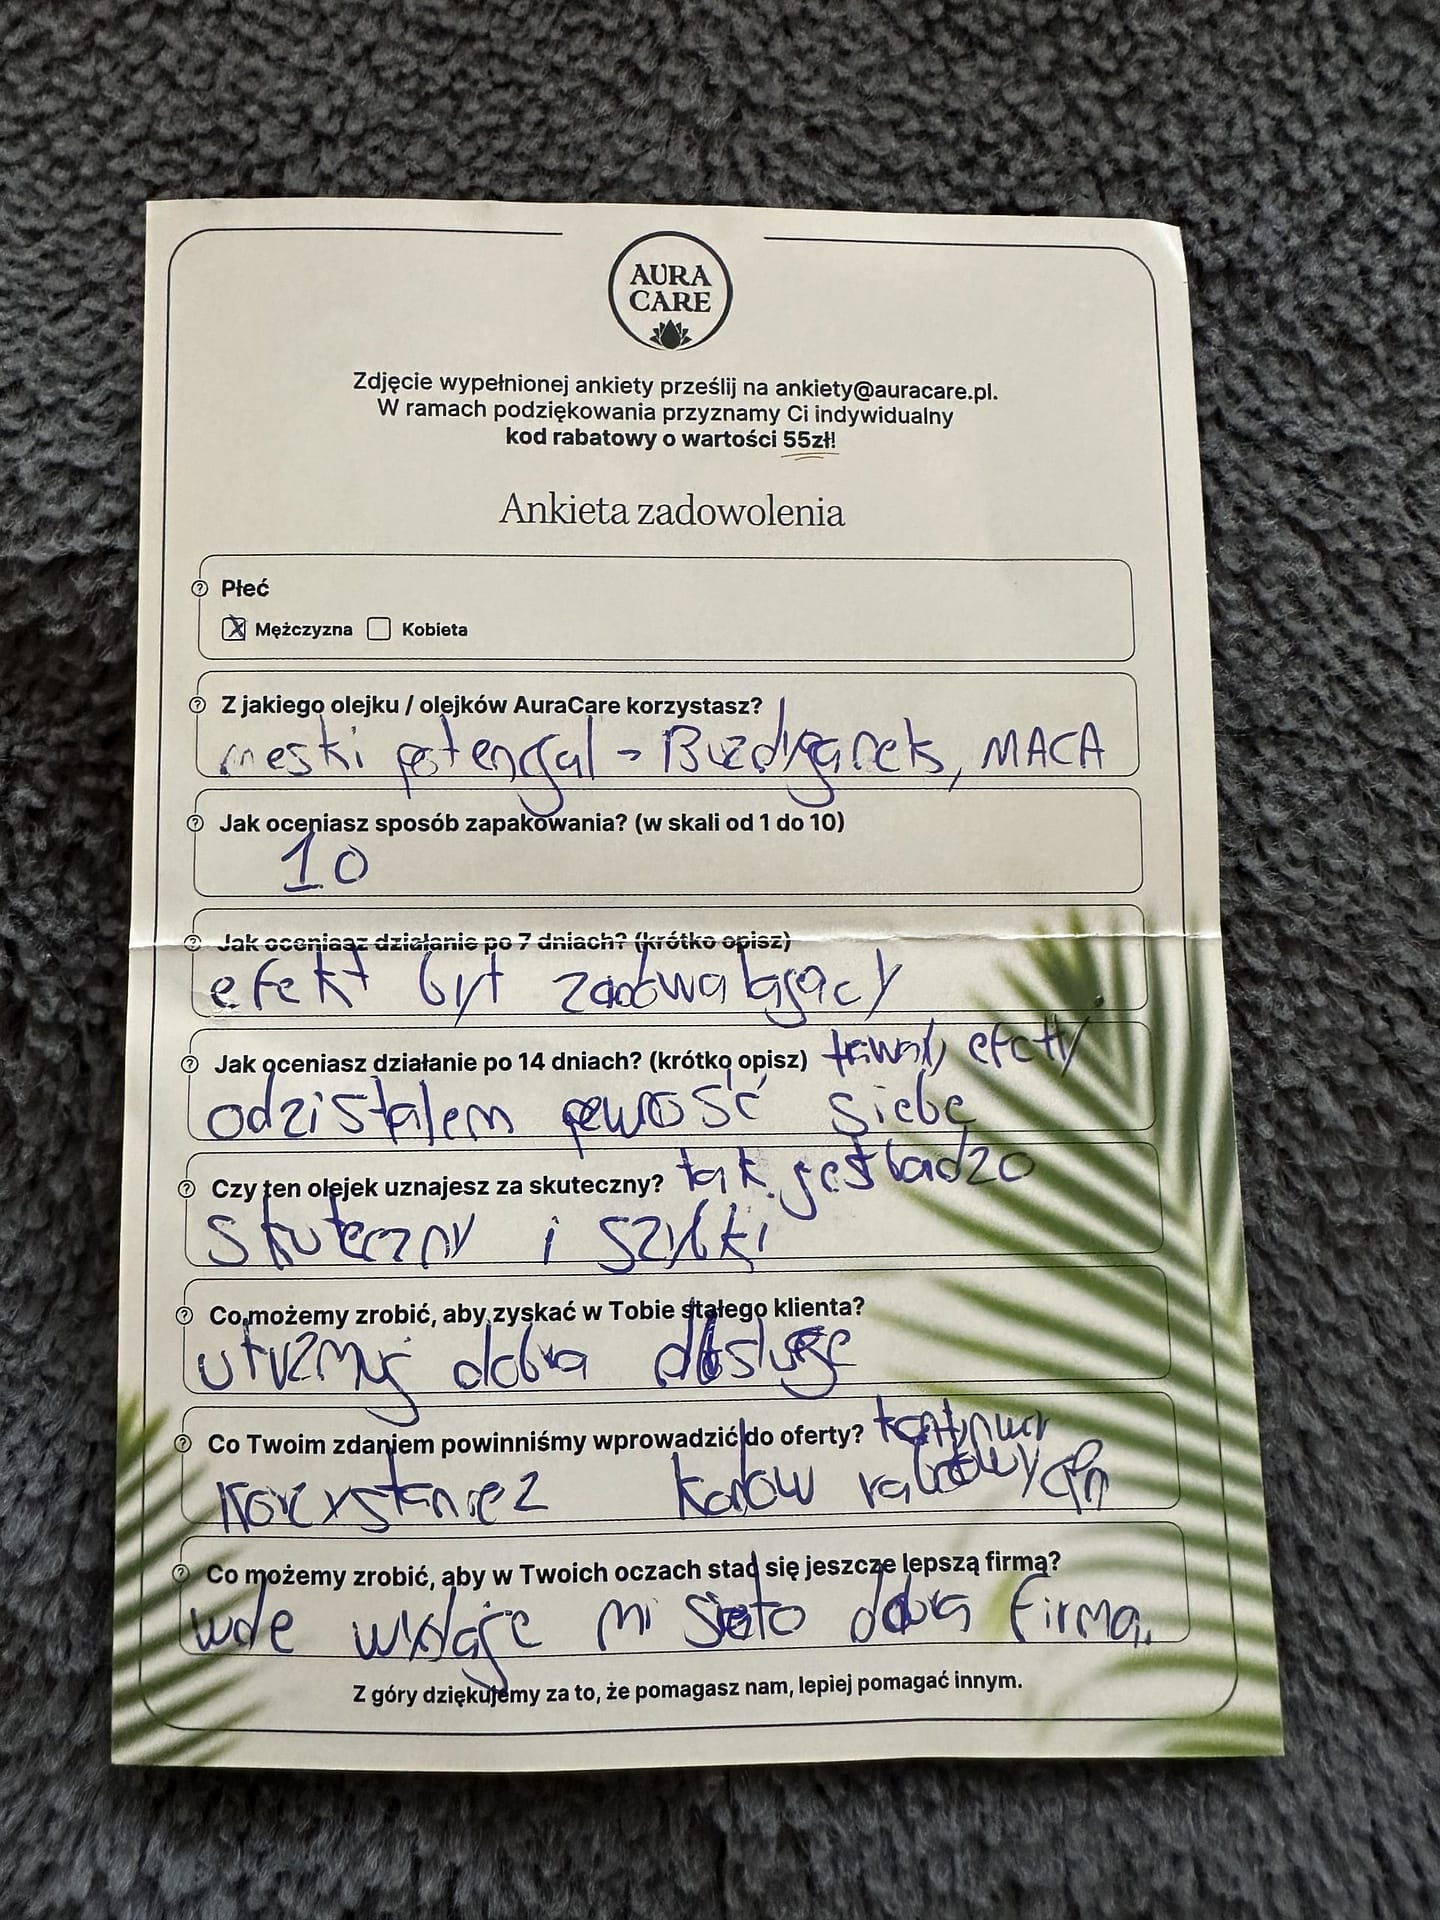 AURA
CARE
Zdjęcie wypełnionej ankiety prześlij na ankiety@auracare.pl.
W ramach podziękowania przyznamy Ci indywidualny
kod rabatowy o wartości 55zł!
Ankieta zadowolenia
Płeć
Mężczyzna Kobieta
Z jakiego olejku / olejków AuraCare korzystasz?
meski potencjal - Buzdyganek, MACA
Jak oceniasz sposób zapakowania? (w skali od 1 do 10)
10
Jak oceniasz działanie po 7 dniach? (krótko opisz)
efekt był zadowalający
Jak oceniasz działanie po 14 dniach? (krótko opisz)
odzistalem pewność siebe
Czy ten olejek uznajesz za skuteczny? tak jest badzo
skuteczny i szybki
Co możemy zrobić, aby zyskać w Tobie stałego klienta?
dobra obsluge
Co Twoim zdaniem powinniśmy wprowadzić do oferty?
korzystanie z kodow rabatowych
Co możemy zrobić, aby w Twoich oczach stać się jeszcze lepszą firmą?
wydaje mi sie to dobra firma.
Z góry dziękujemy za to, że pomagasz nam, lepiej pomagać innym.